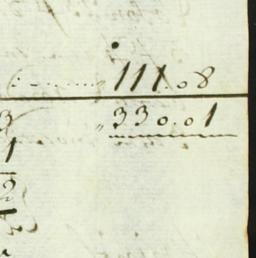 111.08
3 „ 330.01
1
2